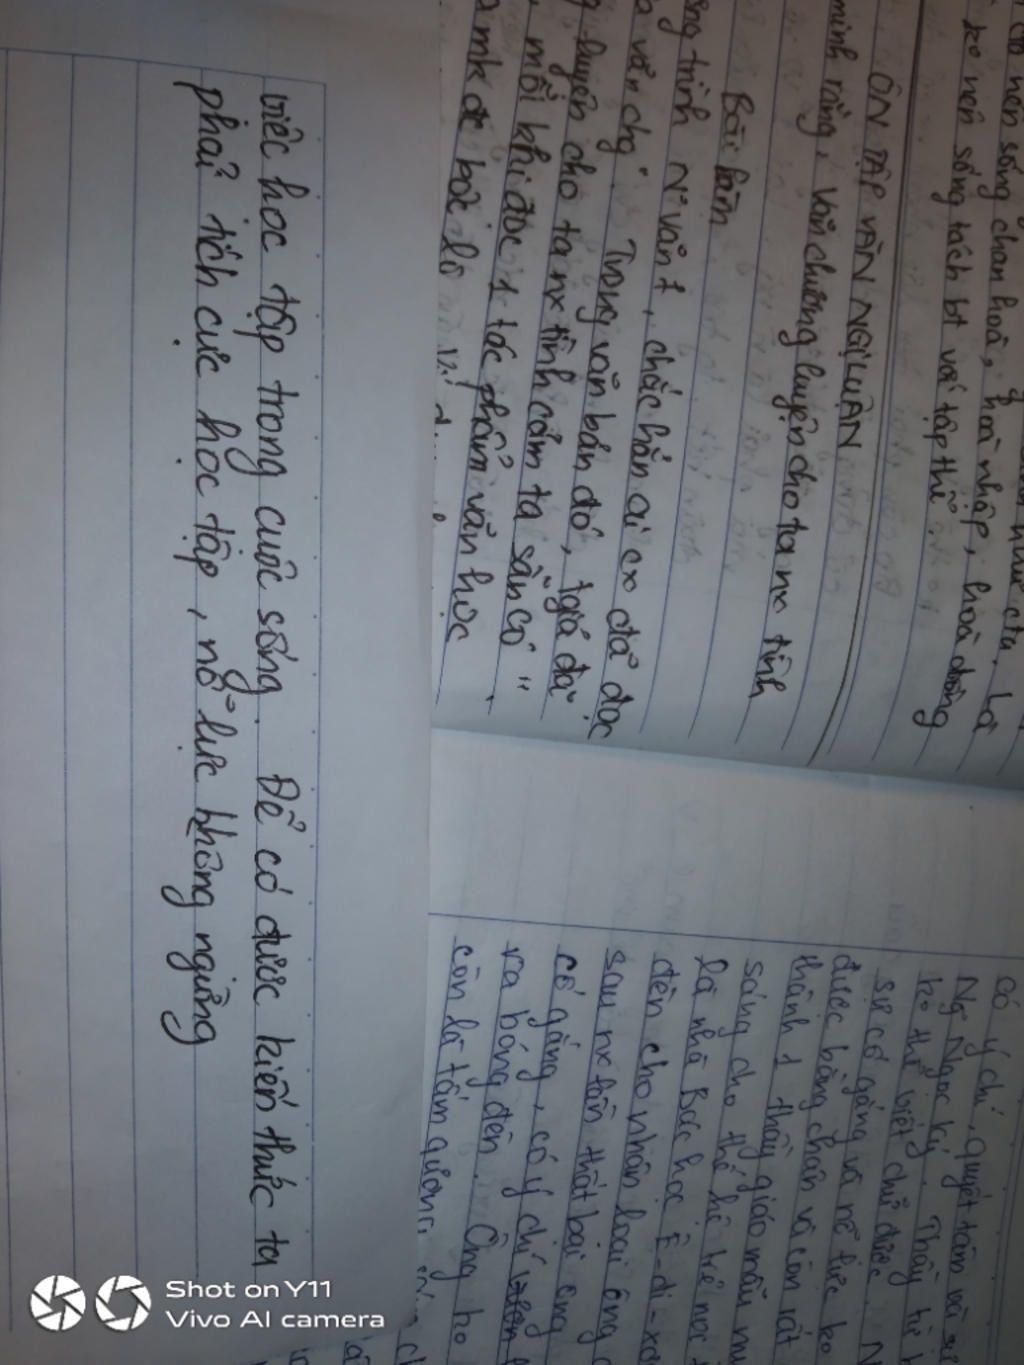 việc học tập trong cuộc sống. Để có được kiến thức ta
phải tích cực học tập, nỗ lực không ngừng
nên sống chan hoà, hoà nhập, hoà đồng
ko nên sống tách bt với tập thể
ÔN TẬP VĂN NGHỊ LUẬN
minh rằng, văn chương luyện cho ta nx tình
Bài làm
trình N'văn 7, chắc hẳn ai cx đã đọc
văn chg". Trong văn bản đó, tgiả đã
luyện cho ta nx tình cảm ta sẵn có"
mỗi khi đọc 1 tác phẩm văn học
mk đc bộc lộ
có ý chí, quyết tâm và
Ng Ngọc Ký. Thầy
ko thể viết chữ được.
sự cố gắng và nỗ lực
được bằng chân và còn
thành 1 thầy giáo mẫu
sáng cho thế hệ trẻ
là nhà Bác học Ê-đi-xơn
đến cho nhân loại
sau nx lần thất bại ông
cố gắng, có ý chí
ra bóng đèn. Ông
còn là tấm gương
Shot on Y11
Vivo AI camera